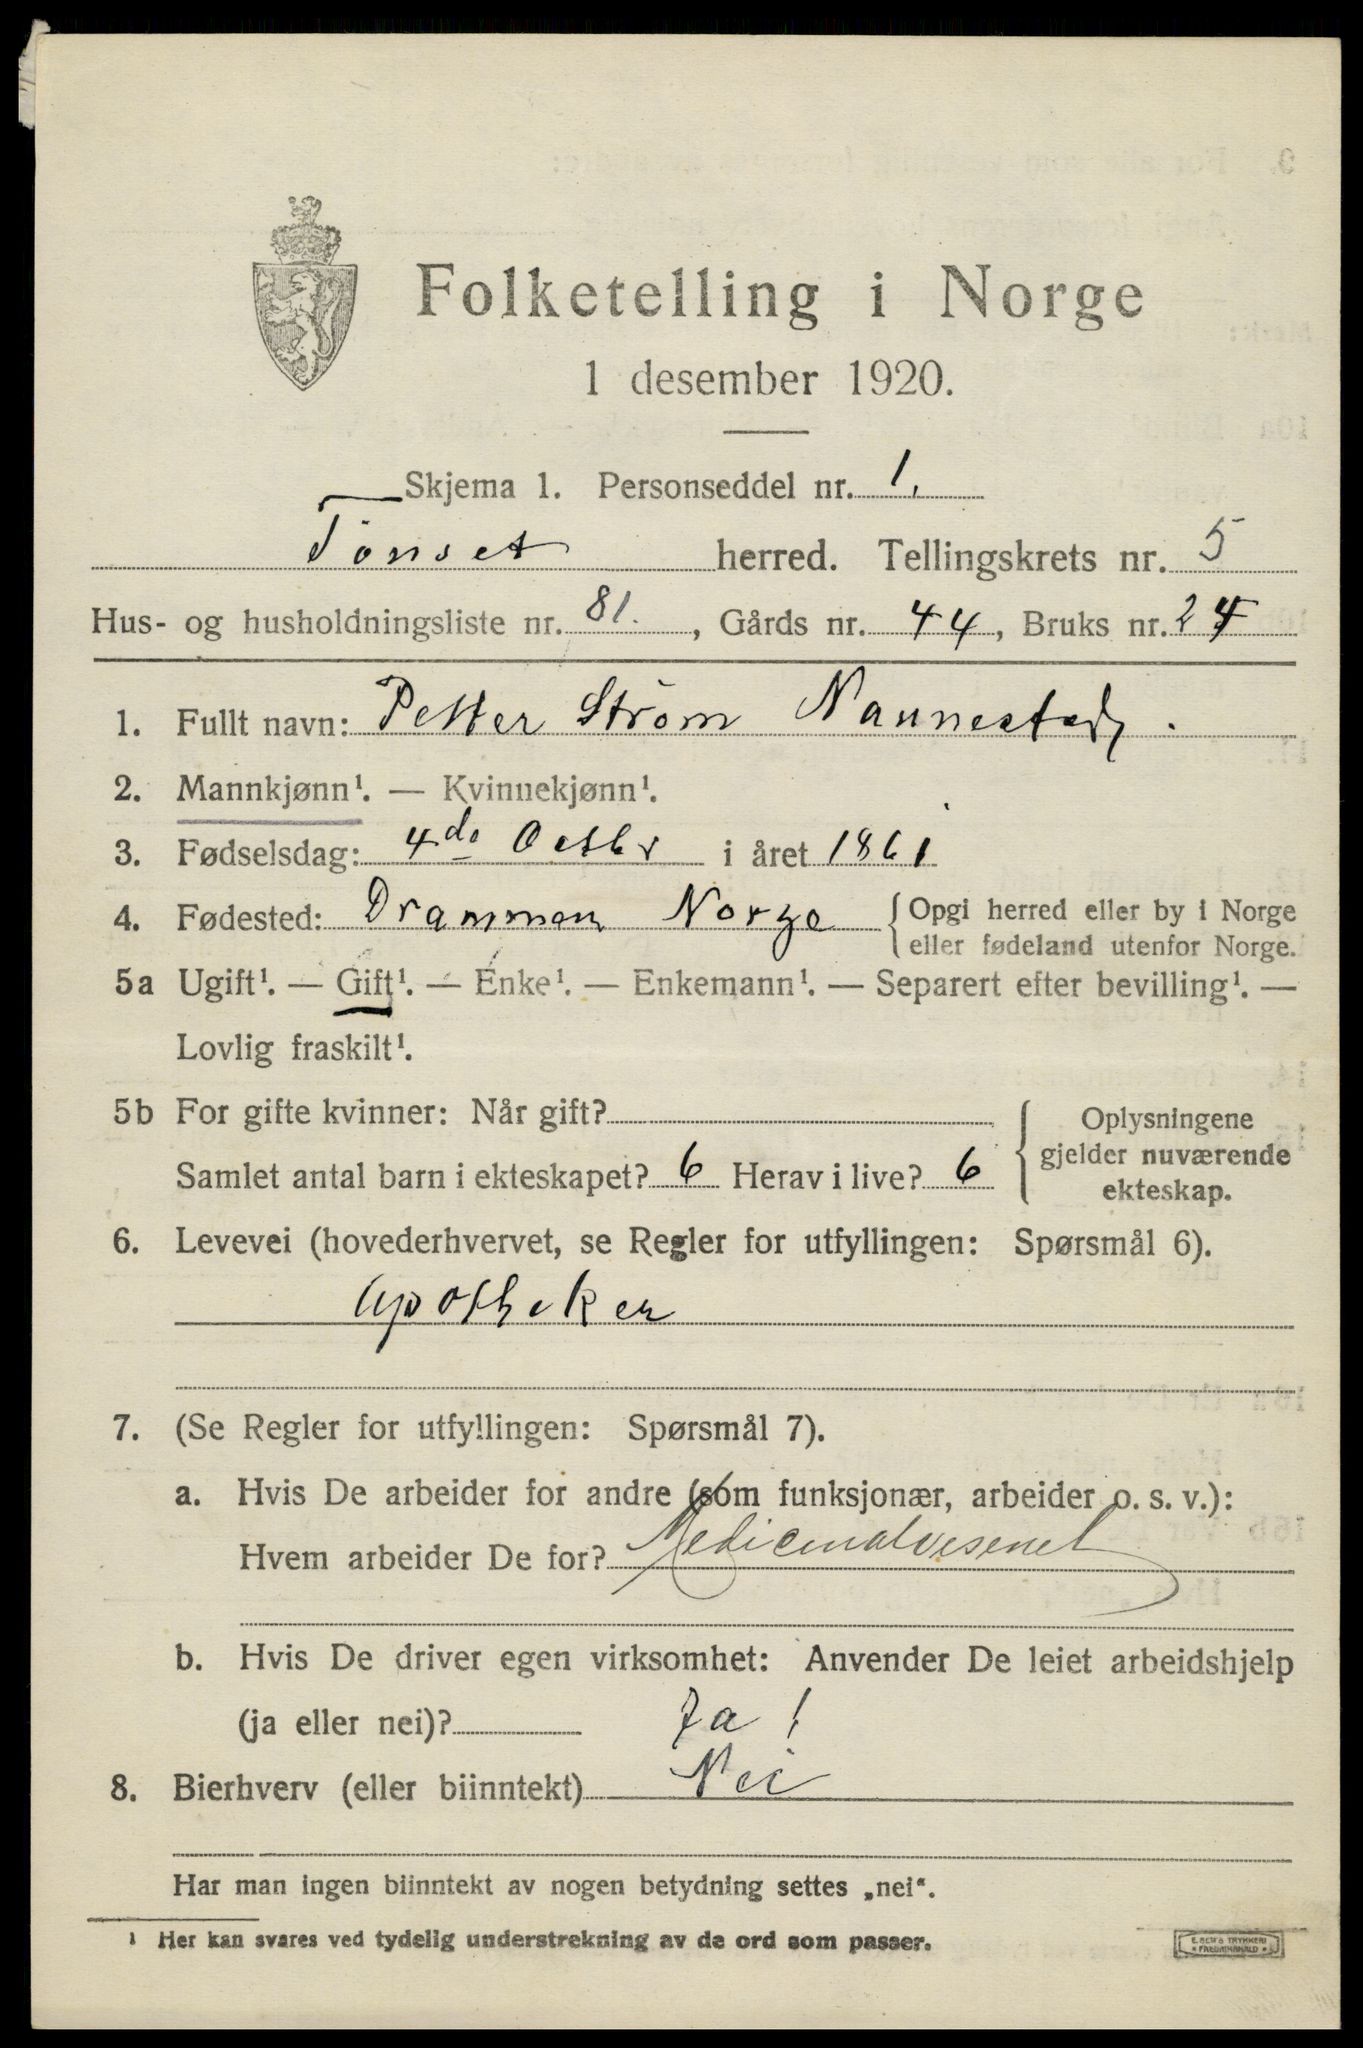 Folketelling i Norge
1 desember 1920.
Skjema 1. Personseddel nr. 1.
Tönset herred. Tellingskrets nr. 5
Hus- og husholdningsliste nr. 81., Gårds nr. 44, Bruks nr. 24
1. Fullt navn: Petter Ström Nannestad.
2. Mannkjønn¹. — Kvinnekjønn¹.
3. Fødselsdag: 4de Octbr i året 1861
4. Fødested: Drammen Norge {Opgi herred eller by i Norge
eller fødeland utenfor Norge.
5a Ugift¹. — Gift¹. — Enke¹. — Enkemann¹. — Separert efter bevilling¹. —
Lovlig fraskilt¹.
5b For gifte kvinner: Når gift?
Samlet antal barn i ekteskapet? 6 Herav i live? 6
{Oplysningene
gjelder nuværende
ekteskap.
6. Levevei (hovederhvervet, se Regler for utfyllingen: Spørsmål 6).
Apotheker
7. (Se Regler for utfyllingen: Spørsmål 7).
a. Hvis De arbeider for andre (som funksjonær, arbeider o. s. v.):
Hvem arbeider De for? Medicinalvesenet
b. Hvis De driver egen virksomhet: Anvender De leiet arbeidshjelp
(ja eller nei)? Ja!
8. Bierhverv (eller biinntekt) Nei
Har man ingen biinntekt av nogen betydning settes „nei“.
¹ Her kan svares ved tydelig understrekning av de ord som passer.